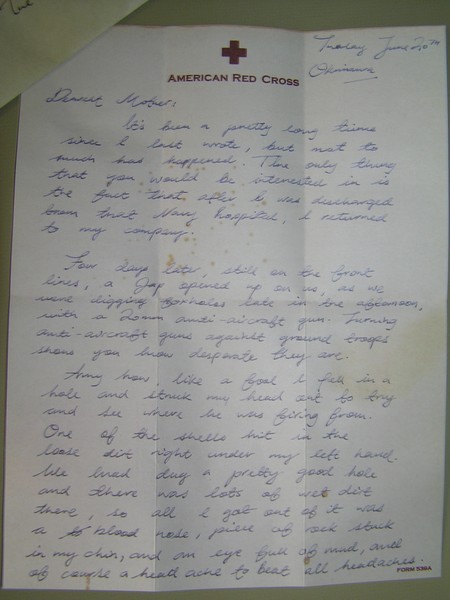 Tuesday June 20th
Okinawa
AMERICAN RED CROSS
Dearest Mother:
It's been a pretty long time
since I last wrote, but not to
much has happened. The only thing
that you would be interested in is
the fact that after I was discharged
from that Navy hospital, I returned
to my company.
Four days later, still on the front
lines, a Jap opened up on us, as we
were digging foxholes late in the afternoon,
with a 20mm anti-aircraft gun. Turning
anti-aircraft guns against ground troops
shows you how desperate they are.
Any how, like a fool I fell in a
hole and struck my head out to try
and see where he was firing from.
One of the shells hit in the
loose dirt right under my left hand.
We had dug a pretty good hole
and there was lots of wet dirt
there, so all I got out of it was
a blood nose, piece of rock stuck
in my chin, and an eye full of mud, and
of course a head ache to beat all headaches.
FORM 539A